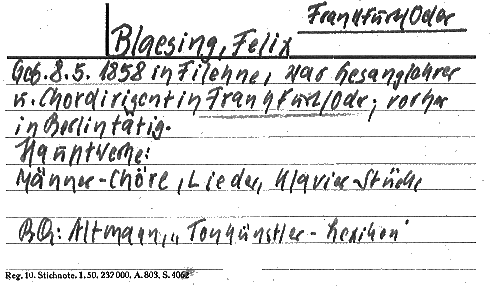 Frankfurt/Oder
Blaesing, Felix
Geb. 8.5. 1858 in Filehne, war Gesanglehrer
u. Chordirigent in Frankfurt/Odr; vorher
in Berlin tätig.
Hauptwerke:
Männer-Chöre, Lieder, Klavier-Stücke
BQ: Altmann, „Tonkünstler-Lexikon"
Reg. 10. Stichnote. 1. 50. 237000. A. 803. S. 4062